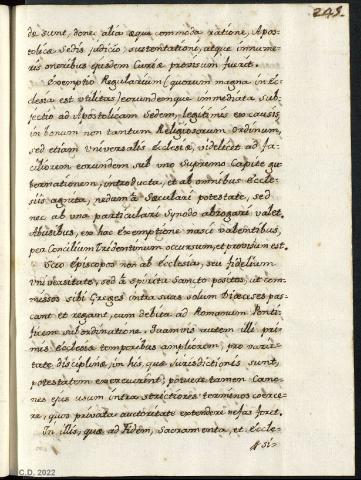 245.
de sunt, donec alia aeque commoda ratione, Apos-
tolicae Sedis judicio, sustentationi, atque innume-
ris oneribus ejusdem Curiae provisum fuerit.
Exemptio Regularium (quorum magna in Ec-
clesia est utilitas) eorundemque immediata sub-
jectio ad Apostolicam Sedem, legitimis ex causis,
in bonum non tantum Religiosorum Ordinum,
sed etiam Universalis Ecclesiae, videlicet ad fa-
ciliorem eorundem sub uno Supremo Capite gu-
bernationem, introducta, et ab omnibus Eccle-
siis agnita, nedum à Saeculari potestate, sed
nec ab una particulari Synodo abrogari valet.
Abusibus, ex hac Exemptione nasci valentibus,
per Concilium Tridentinum occursum, et provisum est.
Scio Episcopos non ab Ecclesia, seu fidelium
Universitate, sed à Spiritu Sancto positos, ut com-
missos sibi Greges intra suas solum Dioeceses pas-
cant et regant, cum debita ad Romanum Ponti-
ficem subordinatione. Quamvis autem illi pri-
mis Ecclesiae temporibus ampliorem, pro varie-
tate disciplinae, in his, quae Jurisdictionis sunt,
potestatem exercuerint; potuere tamen Cano-
nes ejus usum intra strictiores terminos coerce-
re, quos privata auctoritate extendere nefas foret.
In illis, quae ad Fidem, Sacramenta, et Eccle-
si-
C.D. 2022